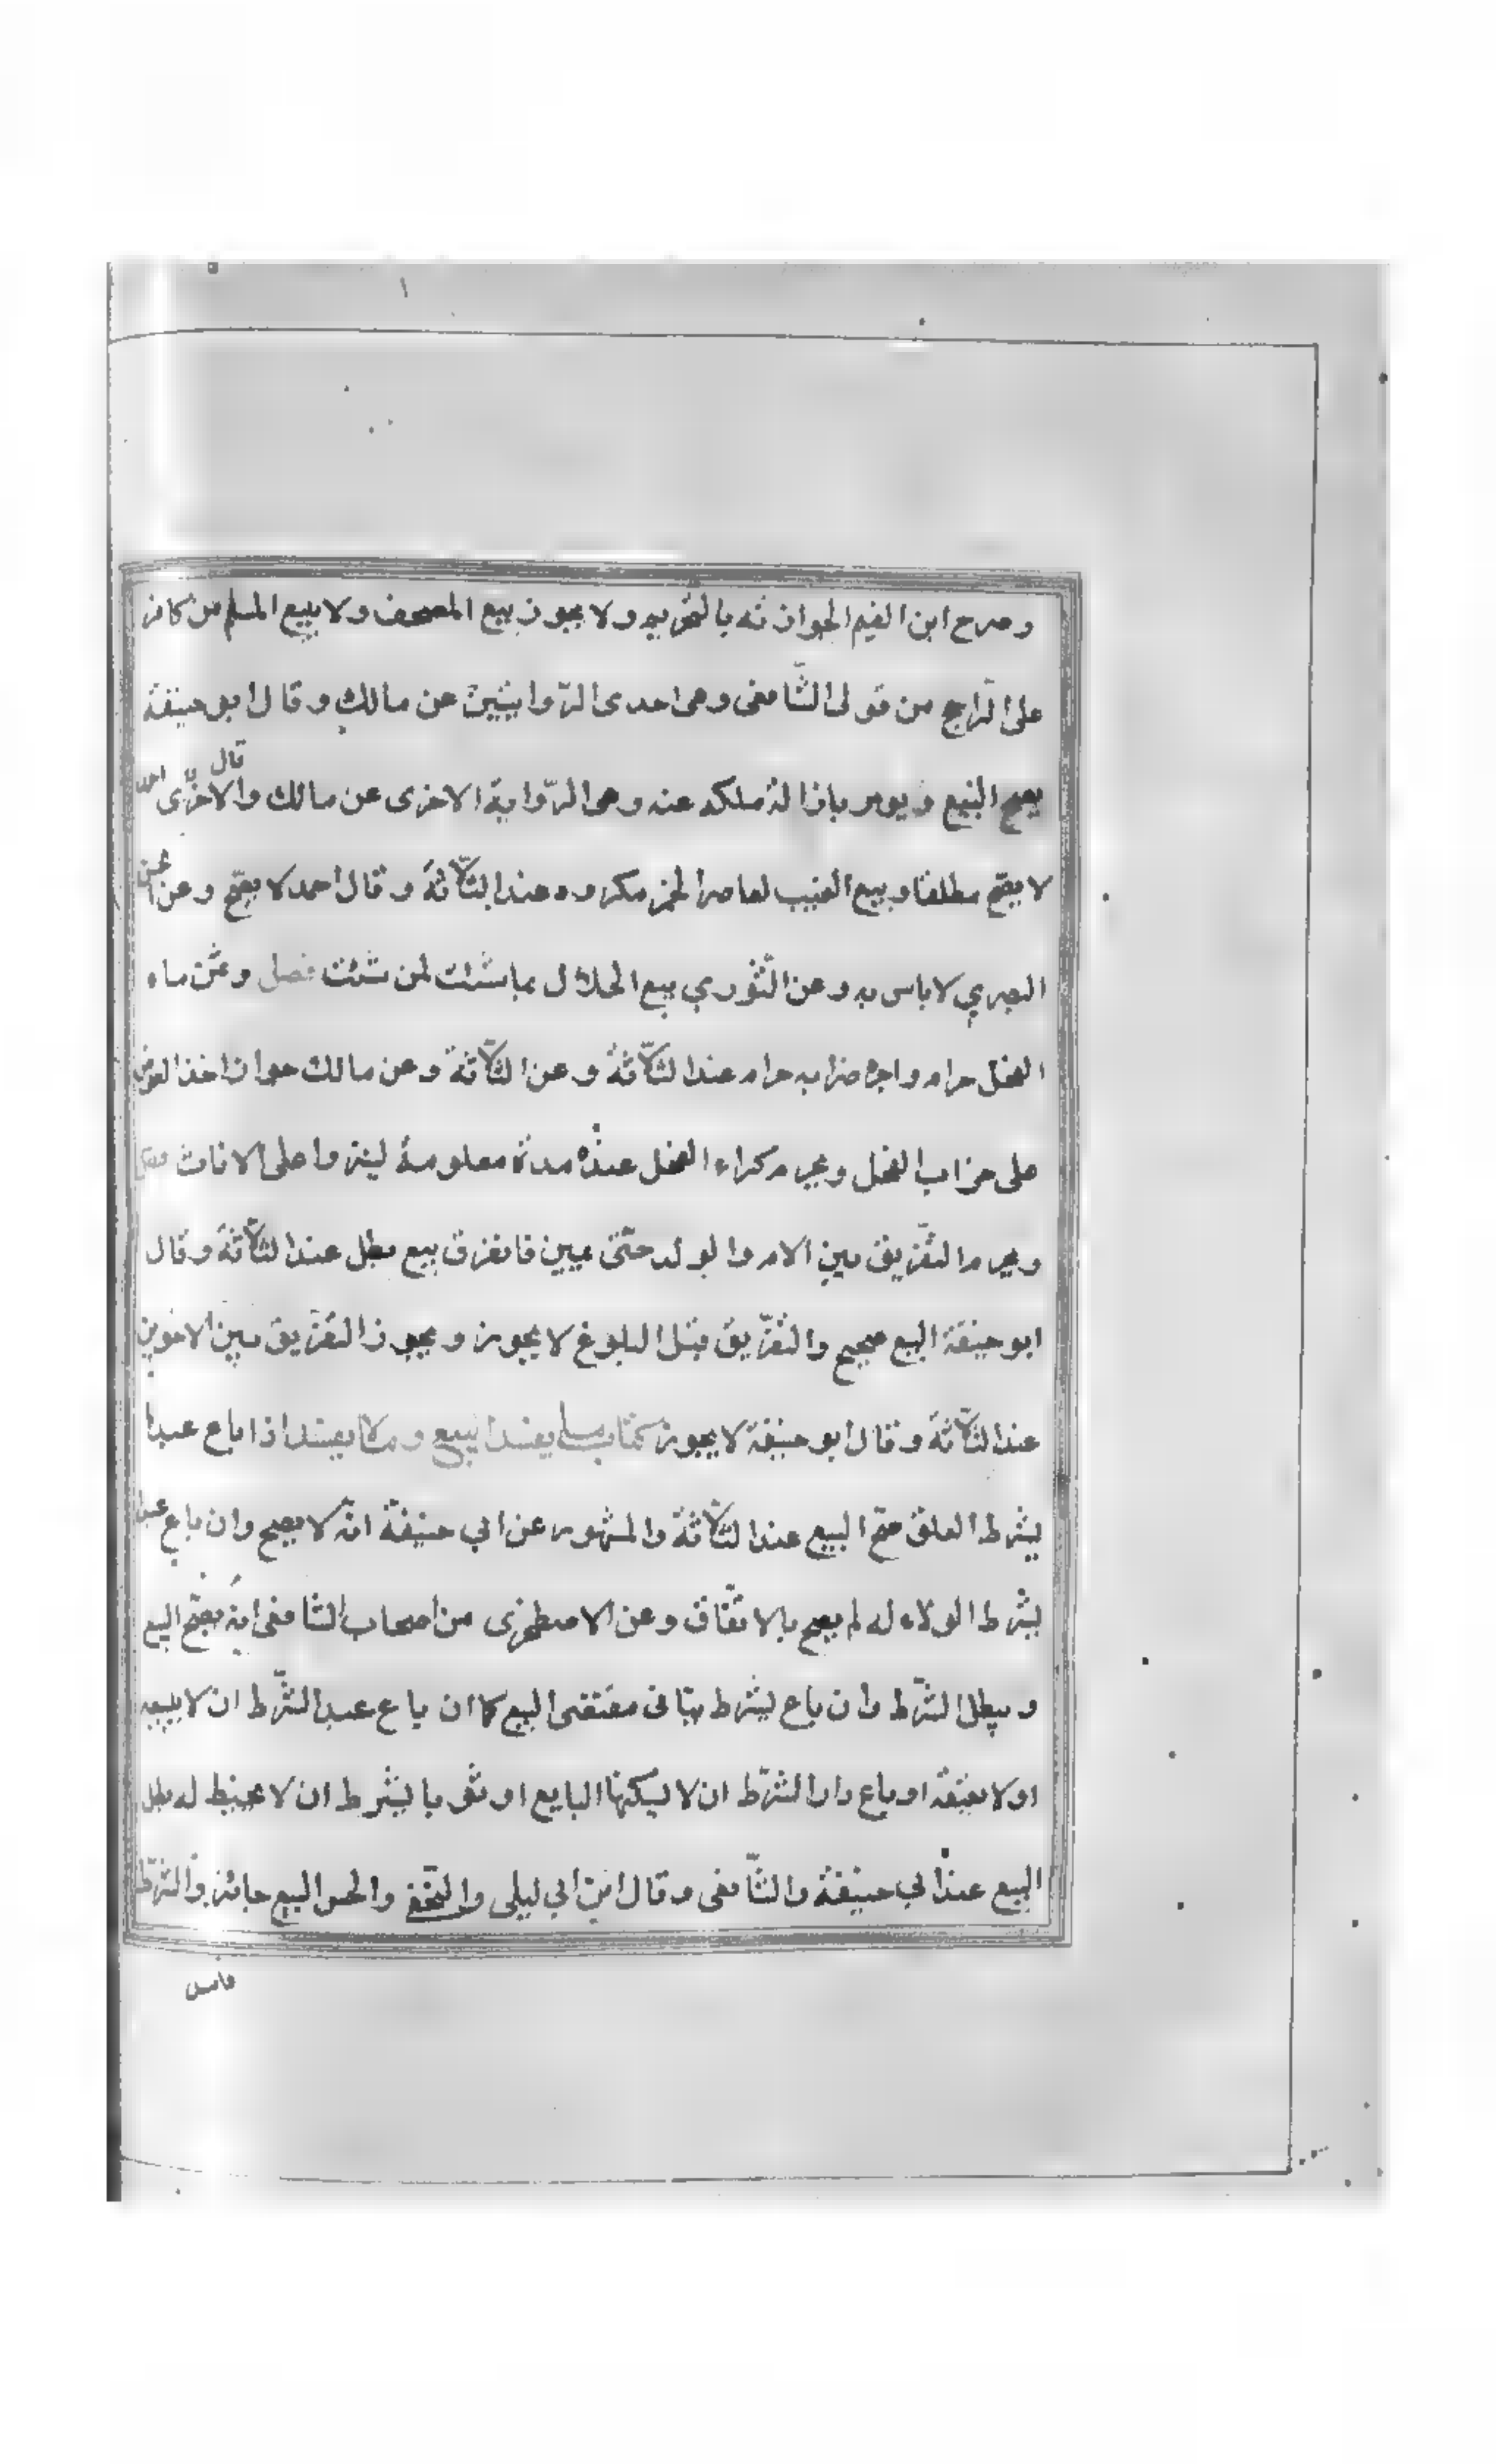 وصرح ابن القيم الجوازنه بالتحريم ولا يجوز بيع المصحف ولا بيع المسلم من كافر
على الرّاجح من قولى الشّافعى وهى احدى الرّوايتين عن مالك وقال ابو حنيفة
يصح البيع ويومر بازالة ملكه عنه وهى الرّواية الاخرى عن مالك والاخرى قال احمد
لا يصّح مطلقا وبيع العنب لعاصر الخمر مكروه عند الثّلاثة وقال احمد لا يصّح وعن الحسن
البصري لا باس به وعن الثّوري بيع الحلال بما شئت لمن شئت فصل وثمن ماء
الفحل حرام واجرة ضرابه حرام عند الثّلاثة وعن الثّلاثة وعن مالك جواز اخذ العوض
على ضراب الفحل ويحرم كراء الفحل عنده مدة معلومة لينزوا على الاناث فصل
ويحرم التّفريق بين الام والولد حتّى يميز فان فرق ببيع بطل عند الثّلاثة وقال
ابو حنيفة البيع صحيح والتّفريق قبل البلوغ لا يجوز ويجوز التفريق بين الاخوين
عند الثّلاثة وقال ابو حنيفة لا يجوز كتاب ما يفسد البيع وما لا يفسد اذا باع عبدا
بشرط العتق صّح البيع عند الثّلاثة والمشهور عن ابي حنيفة انّه لا يصح وان باع عبدا
بشرط الولاء له لم يصح بالاتّفاق وعن الاصطخرى من اصحاب الشافعى انه يصّح البيع
ويبطل الشّرط وان باع بشرط ينافى مقتضى البيع كما ان باع عبدا الشّرط ان لا يبيعه
او لا يعتقه او باع دارا الشّرط ان لا يسكنها البايع او ثوبا بشرط ان لا يخيط له بطل
البيع عند ابي حنيفة والشّافعى وقال ابن ابي ليلى والنّخعى والحسن البيع جائز والشّرط
فاسد